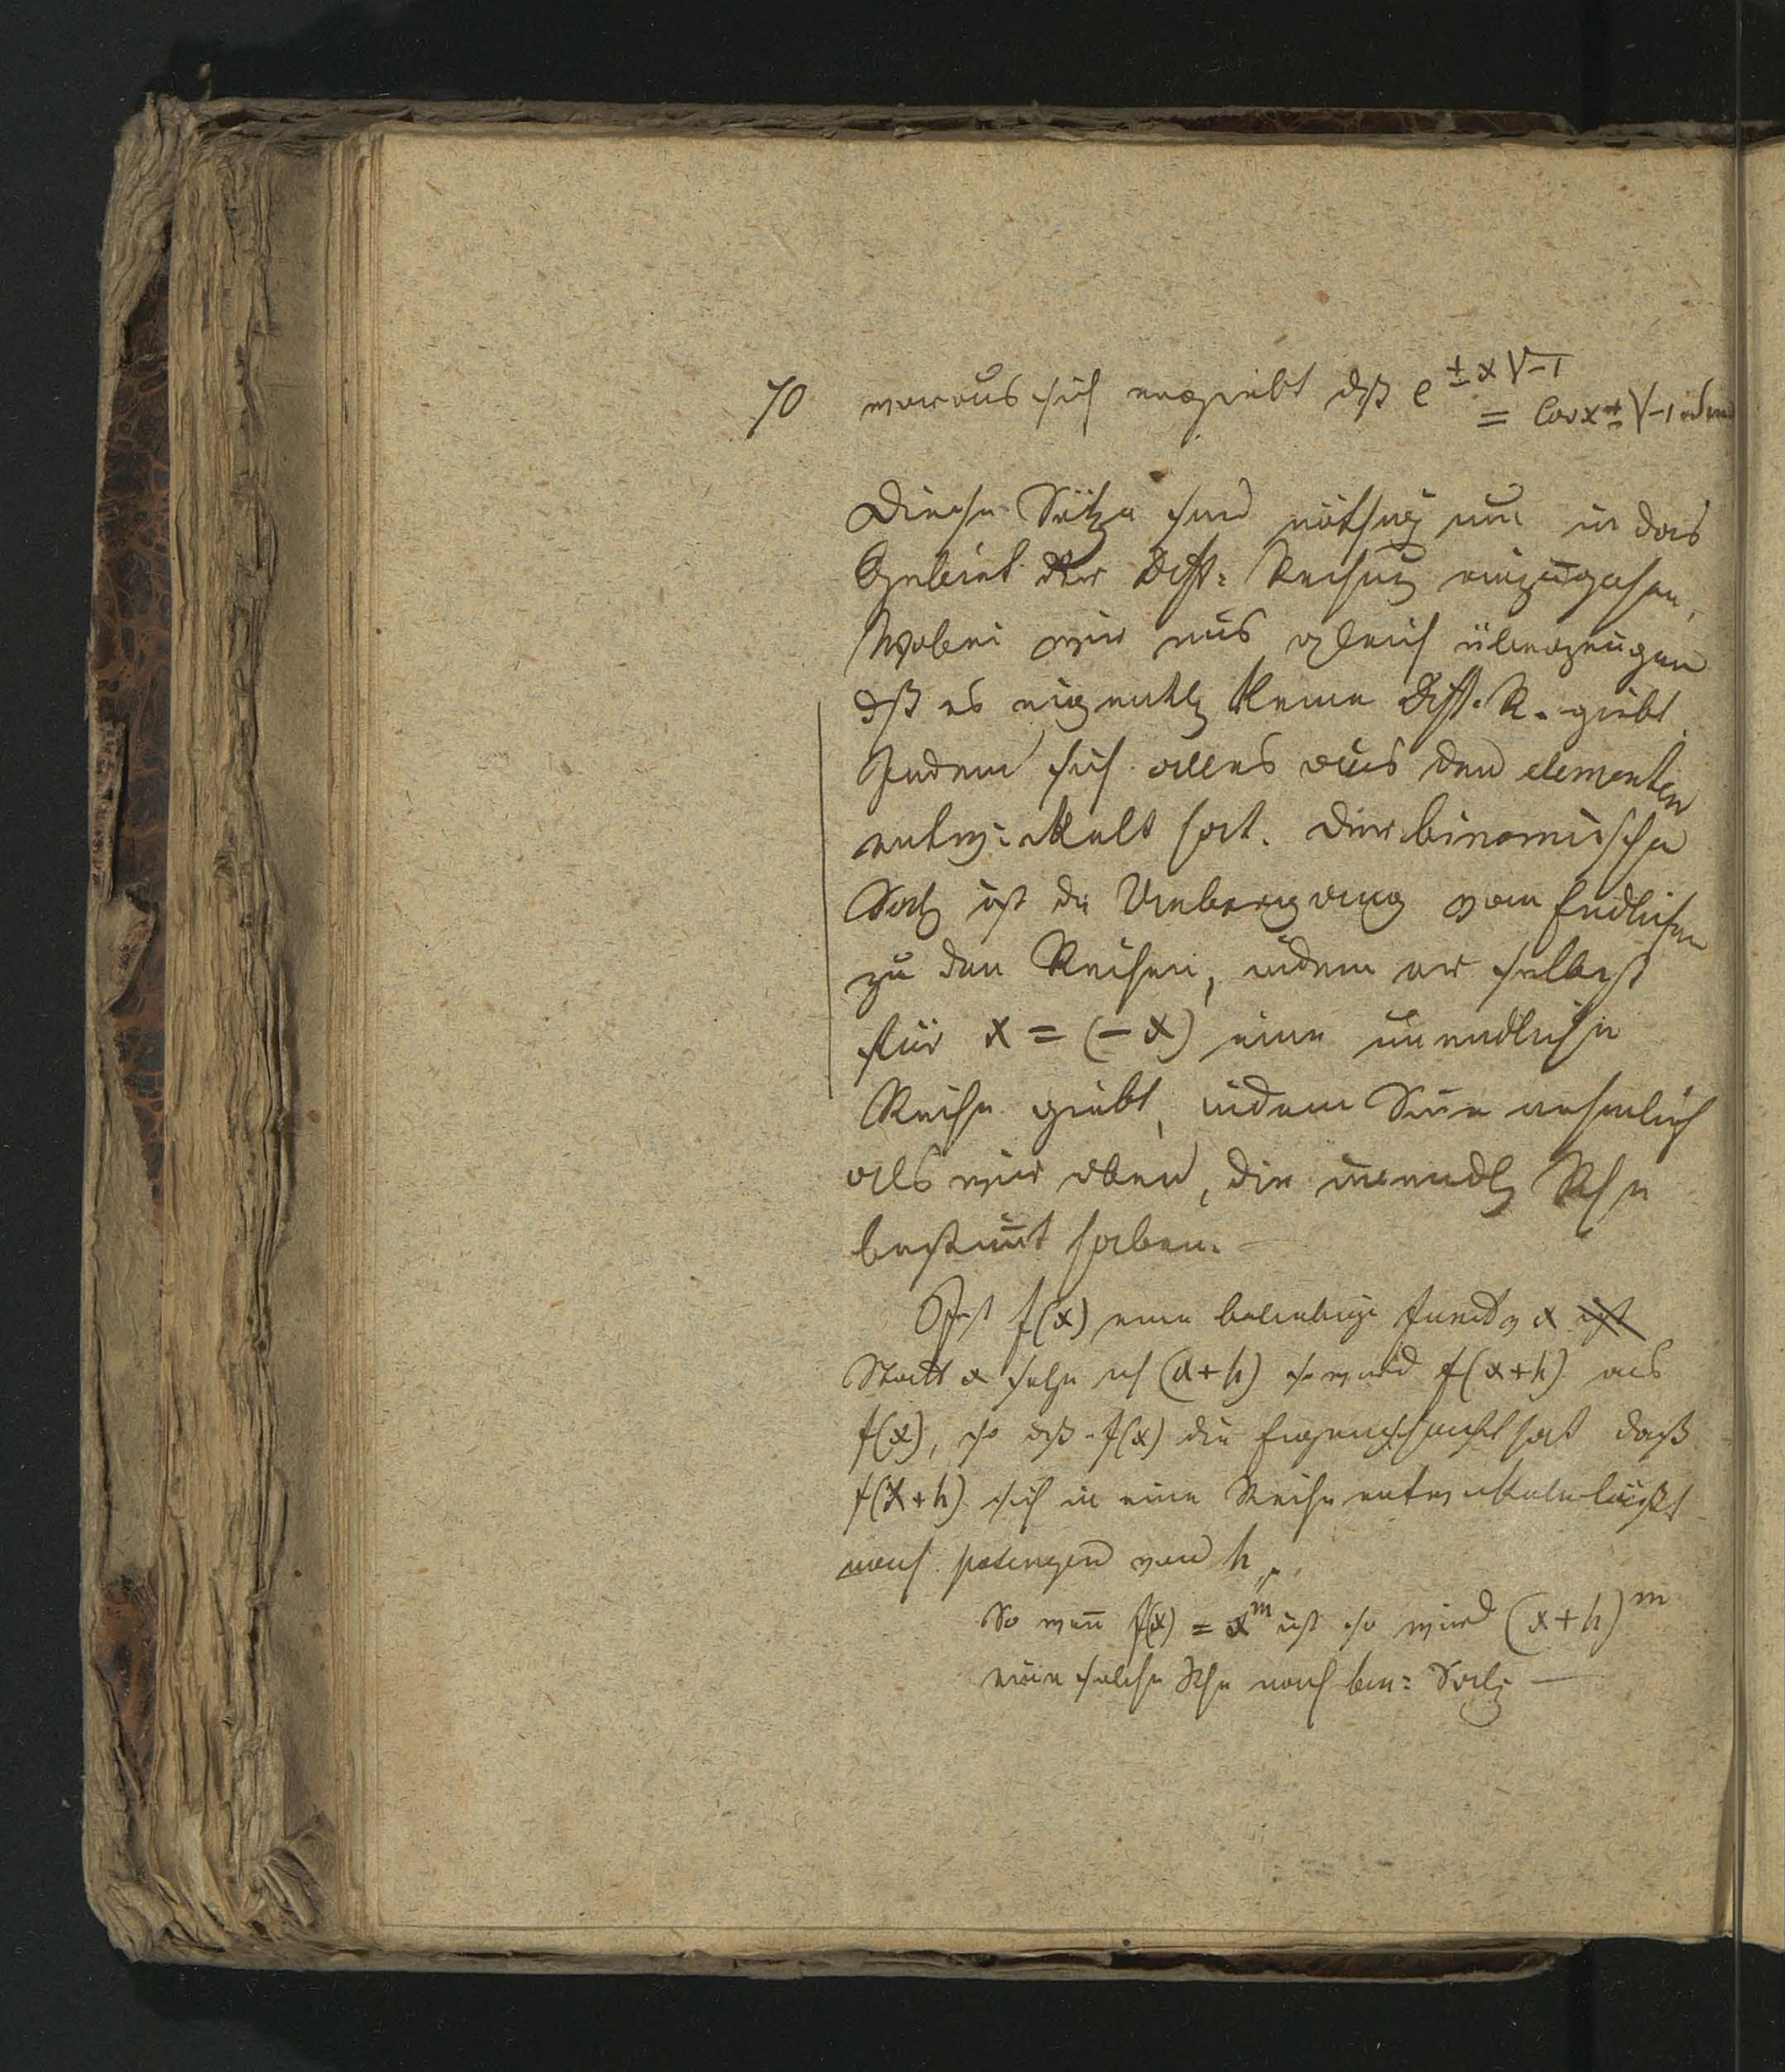 70 woraus sich ergiebt dß e^{± x √-1}
= Cos x ± √-1 Sin
Diese Sätze sind nöthig um in das
Gebiet der Diff: Rechnug einzugehen,
Wobei wir uns gleich überzeugen
dß es eigentlg keine Diff. R. giebt
Indem sich alles aus den elementen
entwickelt hat. Der binomische
Satz ist die Uebergang vom Endlichen
zu den Reihen, indem er selbst
für x = (-x) eine unendliche
Reihe giebt, indem Sie nehmlich
als wir oben, die unendlg Rhe
bestim̅t haben. —
Ist f(x) eine beliebige Funct v x ist
Statt x setze ich (x+h) so wird f(x+h) aus
f(x), so dß f(x) die Eigenschaft hat daß
f(x+h) sich in eine Reihe entwickeln läßt
nach potenzen von h,
So wen̅ f(x) = x^m ist so wird (x+h)^m
eine solche Rhe nach bin: Satz —